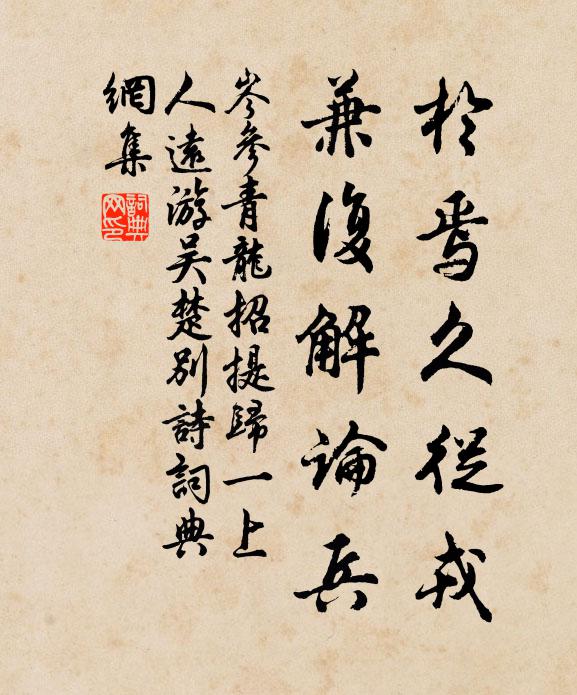 於焉久從戎
兼復解論兵
岑參青龍招提歸一上
人遠游吳楚別詩詞典
網集
詞典網印